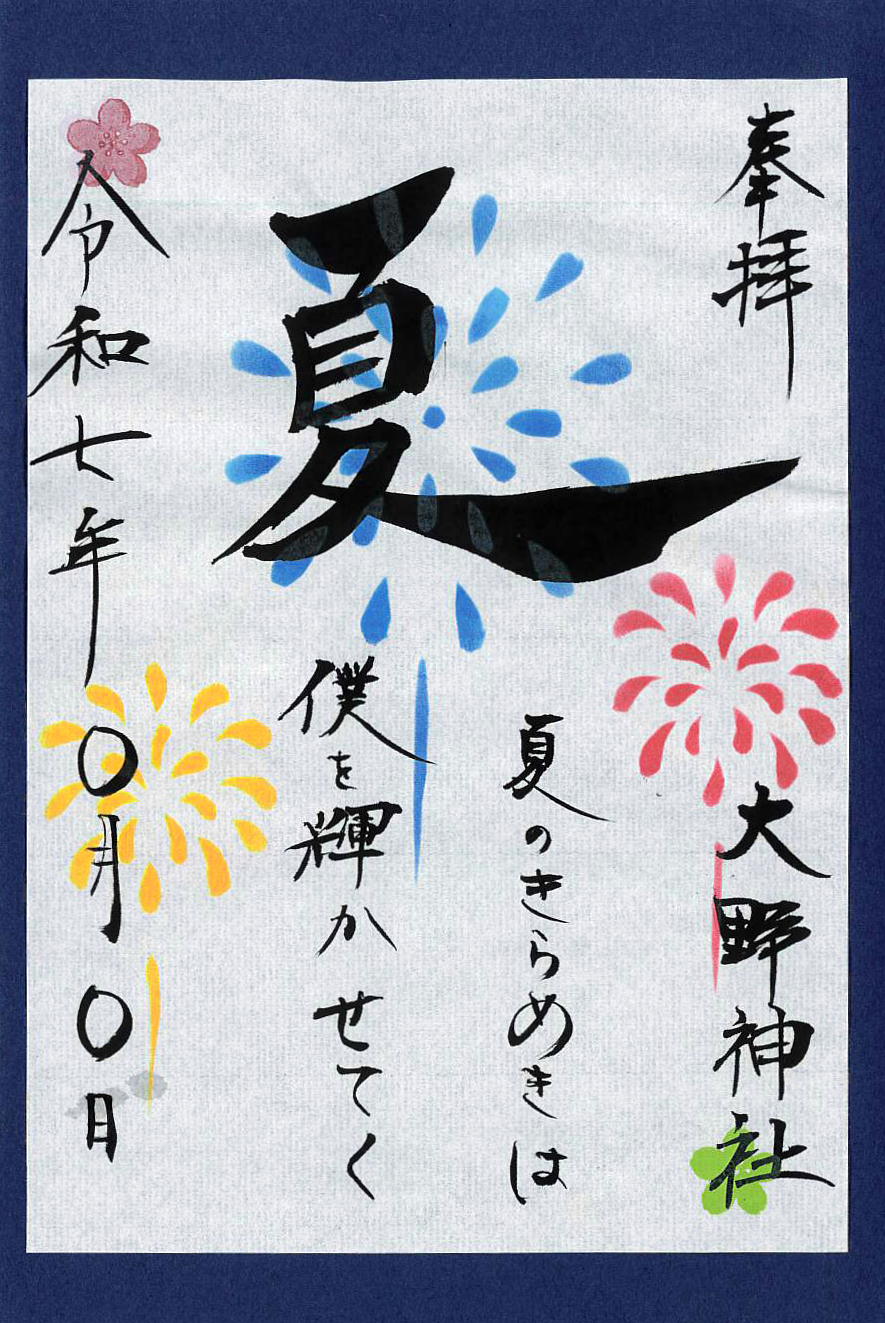 奉拝
大野神社
夏
夏のきらめきは
僕を輝かせてく
令和七年〇月〇日